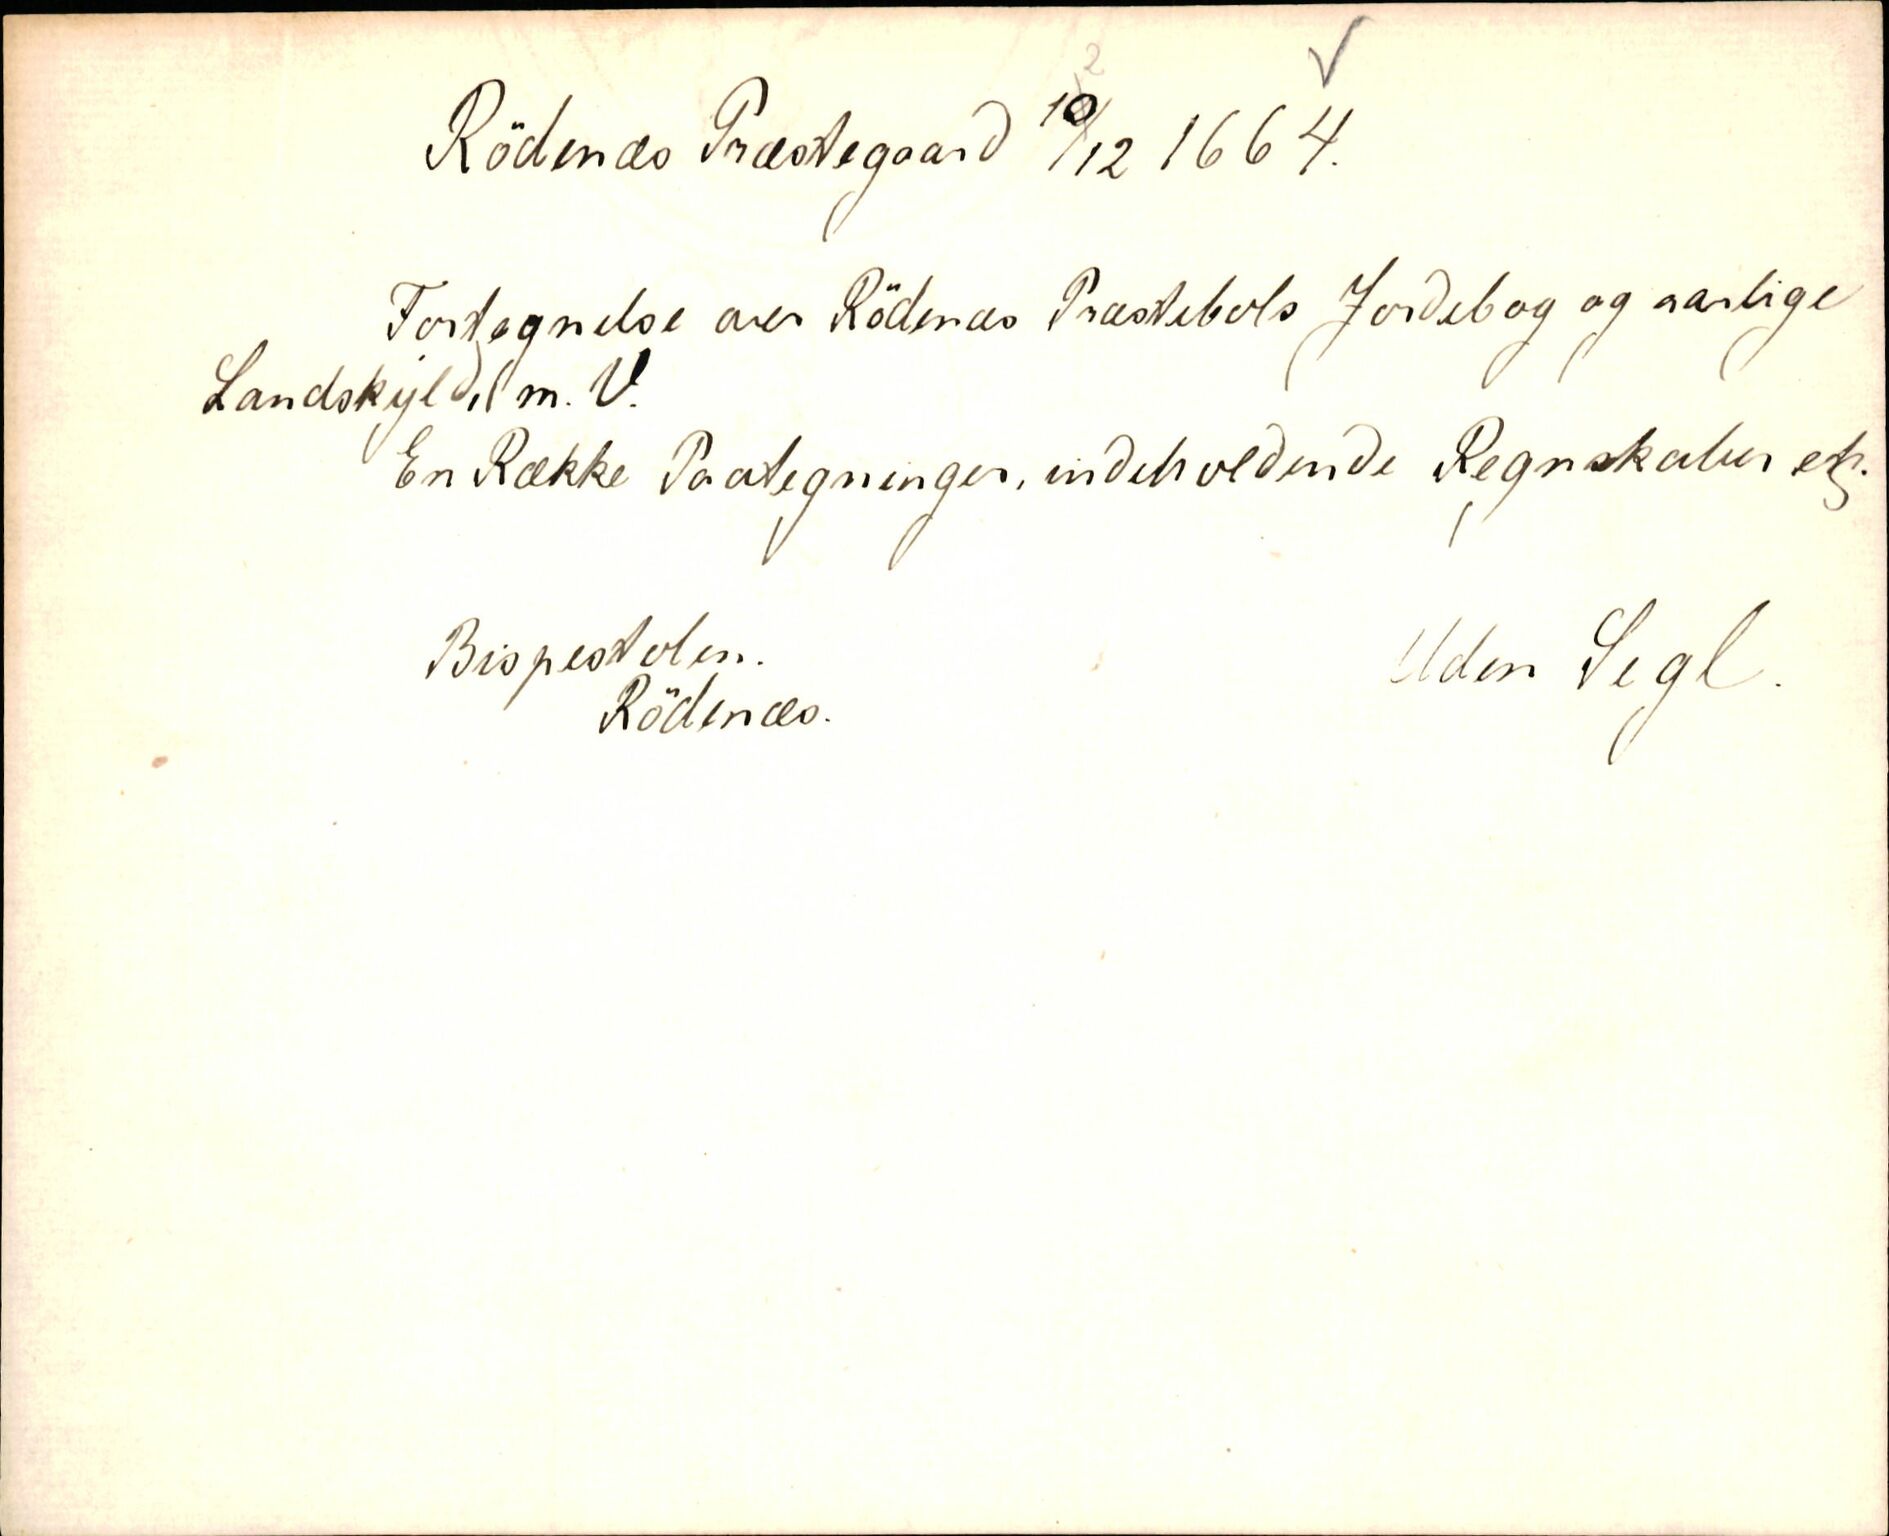 Rödenæs Præstegaard 10/12 1664.
Fortegnelse over Rödenæs Præstebols Jordebog og aarlige
Landskyld, m. V.
En Række Paategninger, indeholdende Regnskaber etc.
Bispestolen. Uden Segl.
Rödenæs.